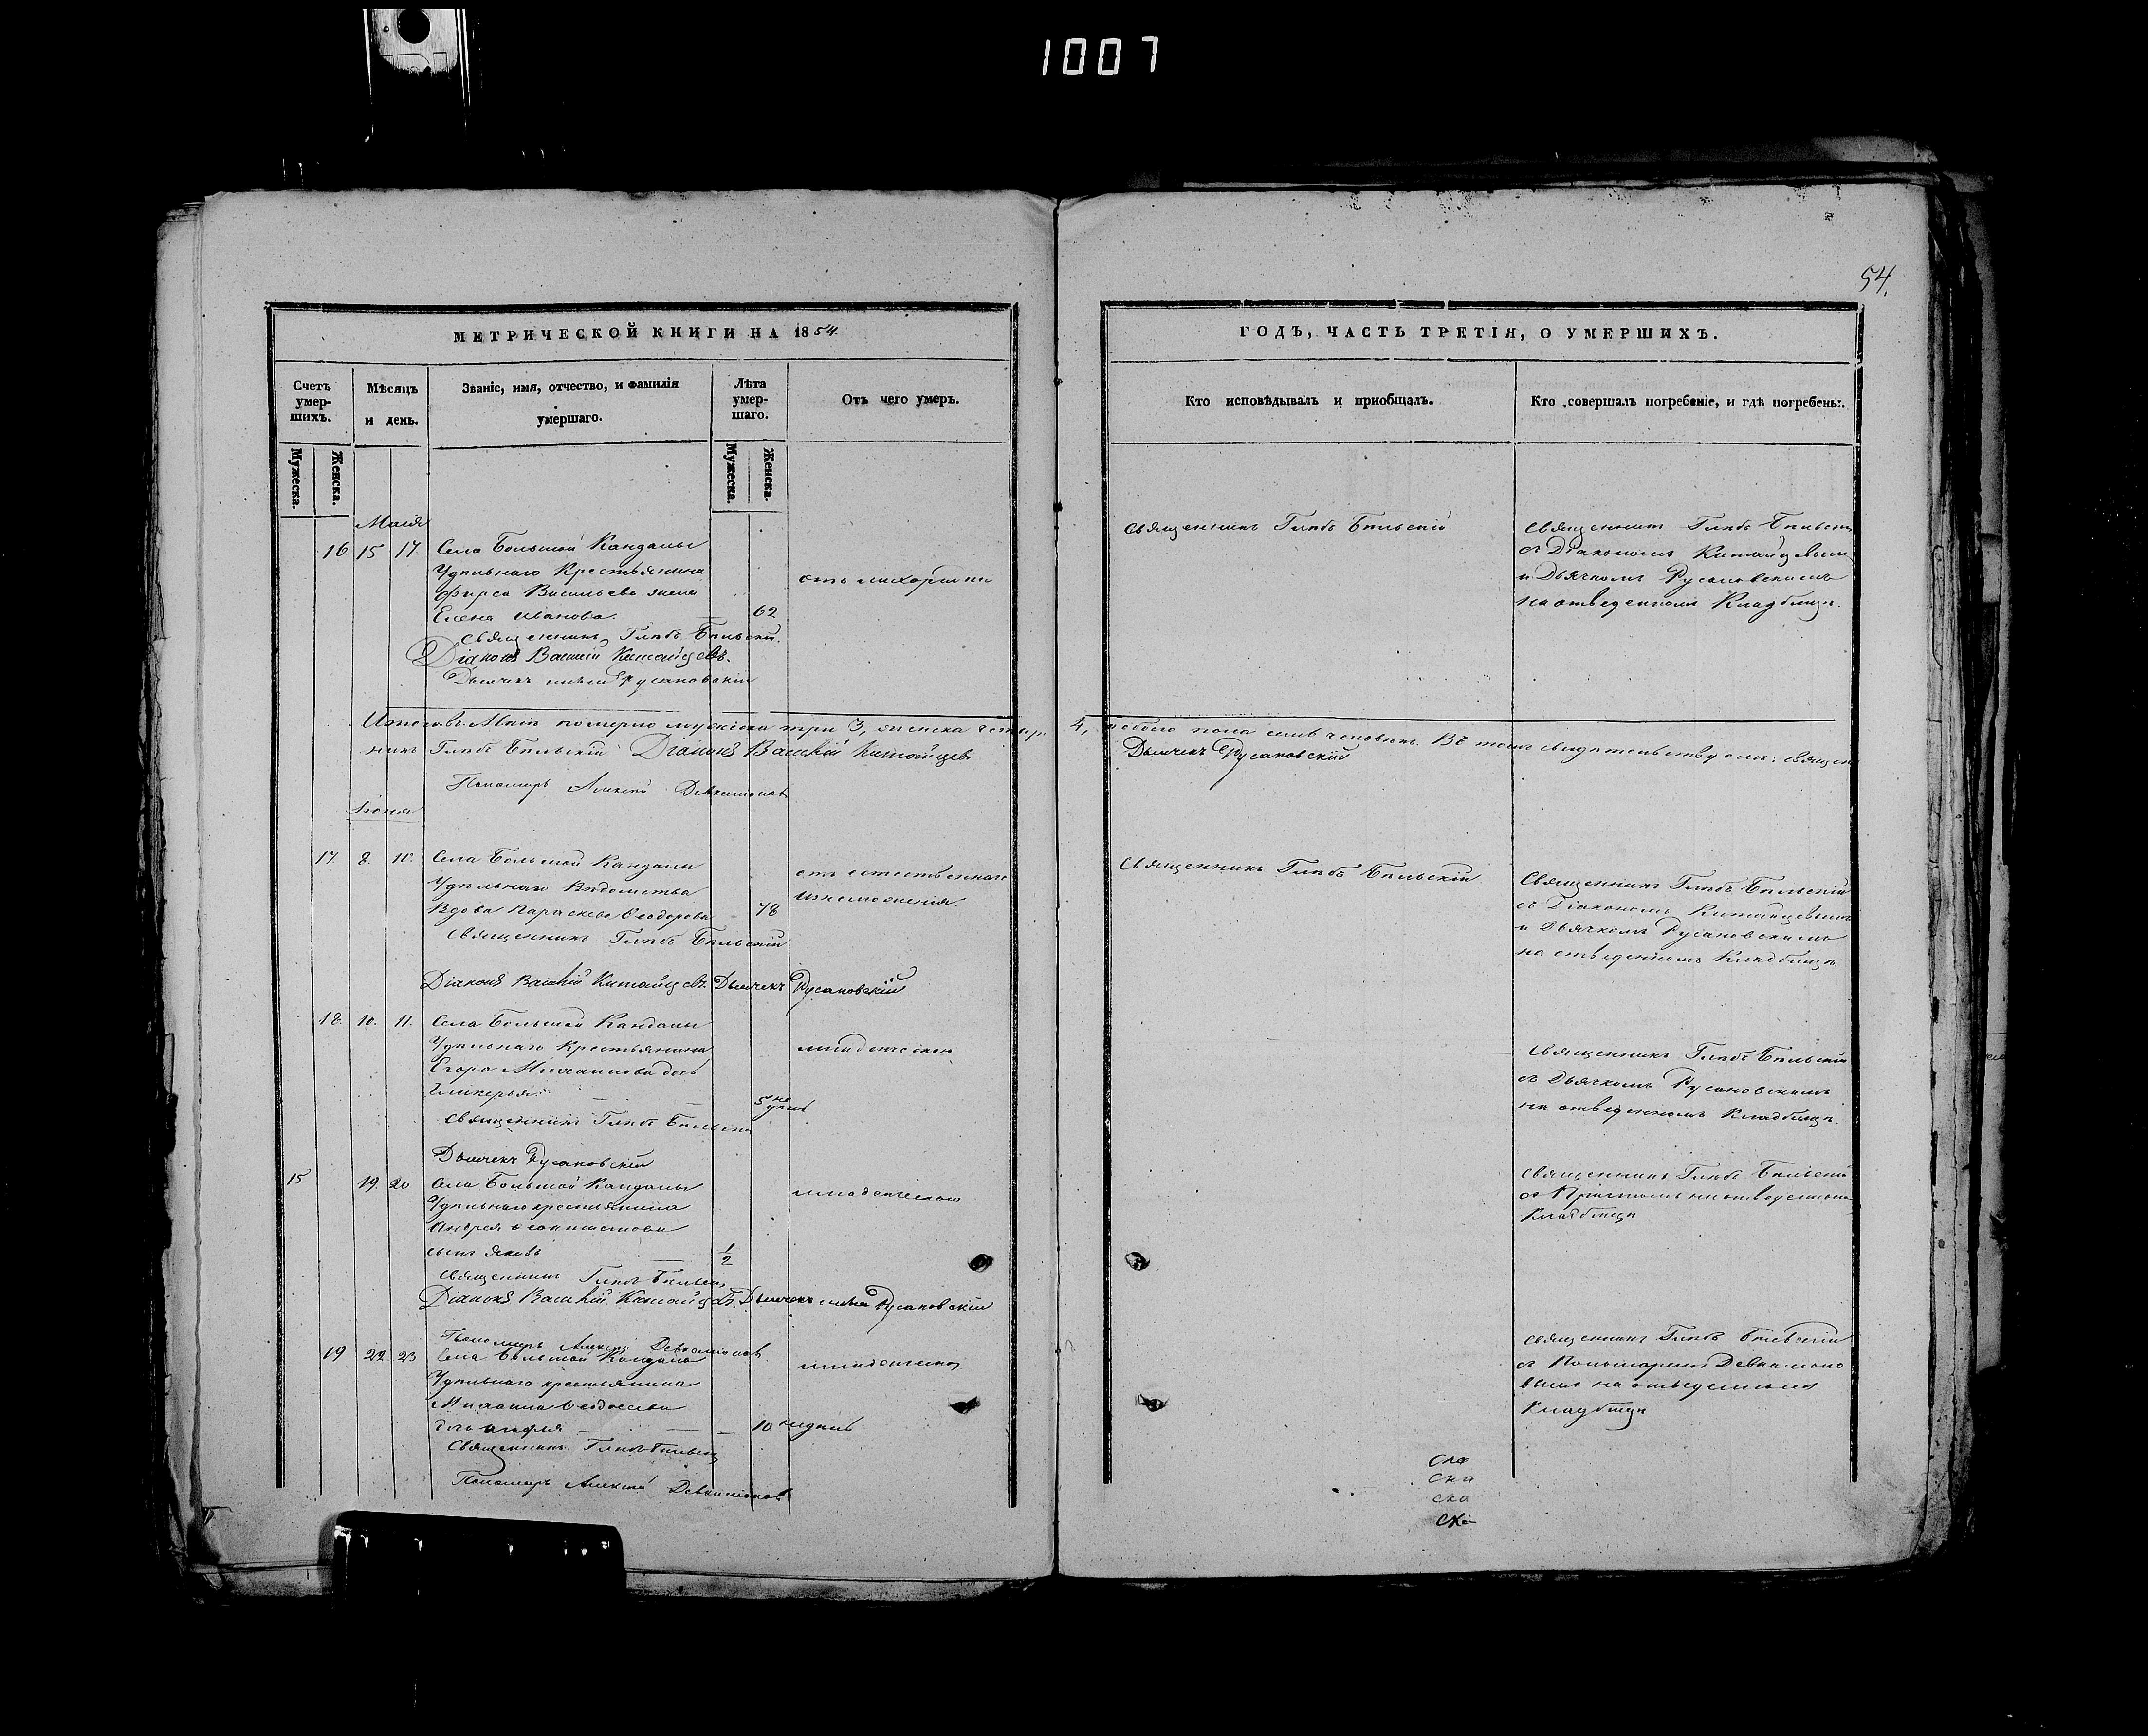 1007
54.
МЕТРИЧЕСКОЙ КНИГИ НА 1854.
Счетъ умер-шихъ.
Мѣсяцъ и день.
Званіе, имя, отчество, и фамилія умершаго.
Лѣта умер-шаго.
Отъ чего умеръ.
Мужеска.
Женска.
Мужеска.
Женска.
Маія
16 15 17. Села Большой Кандалы
Удѣльнаго Крестьянина
Фирса Васильева жена
Елена Иванова. 62
отъ лихорадки
Священникъ Глѣбъ Бѣльскій.
Діаконъ Василій Китайцевъ.
Дьячекъ Русановскій
Итого въ Маіѣ померло мужеска три 3, женска четыре
никъ Глѣбъ Бѣльскій Діаконъ Василій Китайцевъ
Пономарь Алексѣй Девкалионовъ
Іюня
17. 8. 10. Села Большой Кандалы
Удѣльнаго Вѣдомства
Вдова Параскева Ѳеодорова 78
отъ естественнаго
изнеможенія.
Священникъ Глѣбъ Бѣльскій
Діаконъ Василій Китайцевъ. Дьячекъ Русановскій
18. 10. 11. Села Большой Кандалы
Удѣльнаго Крестьянина
Егора дочь
Гликерья 5 не
дѣль
Священникъ Глѣбъ Бѣльскій
Дьячекъ Русановскій
15 19. 20 Села Большой Кандалы
Удѣльнаго крестьянина
Андрея
сынъ Яковъ 1/2
Священникъ Глѣбъ Бѣльскій
Діаконъ Василій Китайцевъ. Дьячекъ Русановскій
Пономарь Алексѣй Девкалионовъ
19 22 23 Села Большой Кандалы
Удѣльнаго крестьянина
Михаила Ѳеодосеева
дочь 10 недѣль
Священникъ Глѣбъ Бѣльскій
Пономарь Алексѣй Девкалионовъ
ГОДЪ, ЧАСТЬ ТРЕТІЯ, О УМЕРШИХЪ.
Кто исповѣдывалъ и пріобщалъ.
Кто совершалъ погребеніе, и гдѣ погребены.
Священникъ Глѣбъ Бѣльскій
Священникъ Глѣбъ Бѣльскій
съ Діакономъ Китайцевымъ
и Дьячкомъ Русановскимъ
на отведенномъ Кладбищѣ.
4, обоего пола семь человѣкъ. Въ томъ свидѣтельствуемъ: Священ
Дьячекъ Русановскій
Священникъ Глѣбъ Бѣльскій
Священникъ Глѣбъ Бѣльскій
съ Діакономъ Китайцевымъ
и Дьячкомъ Русановскимъ
на отведенномъ Кладбищѣ.
Священникъ Глѣбъ Бѣльскій
съ Дьячкомъ Русановскимъ
на отведенномъ Кладбищѣ.
Священникъ Глѣбъ Бѣльскій
съ Причтомъ на отведенномъ
Кладбищѣ
Священникъ Глѣбъ Бѣльскій
съ Пономаремъ Девкалионо
вымъ на отведенномъ
Кладбищѣ